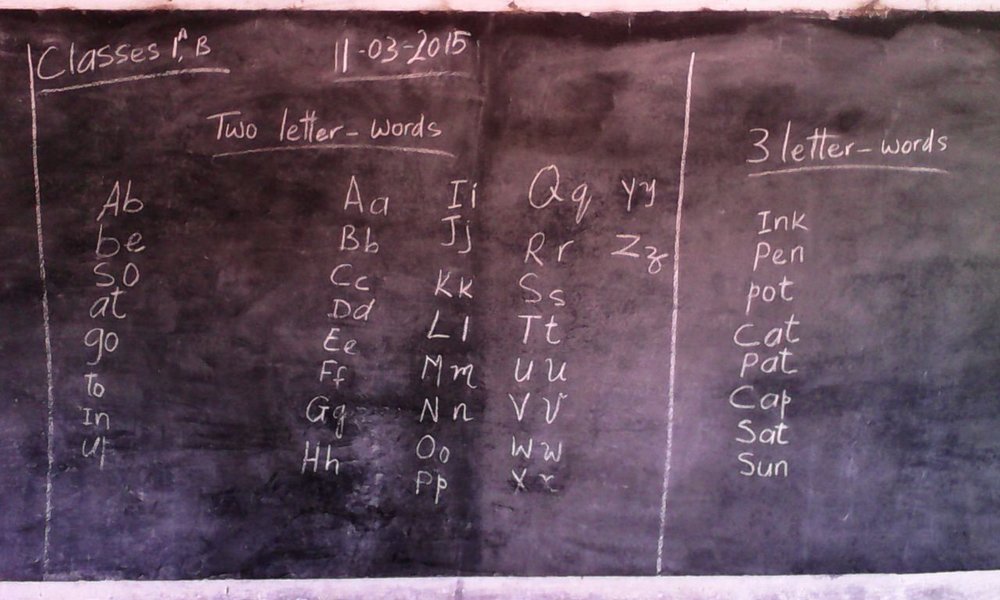 Classes 1A, B
11-03-2015
Two letter-words
Ab
be
so
at
go
To
In
up
Aa
Bb
Cc
Dd
Ee
Ff
Gg
Hh
Ii
Jj
Kk
Ll
Mm
Nn
Oo
Pp
Qq
Rr
Ss
Tt
Uu
Vv
Ww
Xx
Yy
Zz
3 letter-words
Ink
Pen
pot
Cat
Pat
Cap
Sat
Sun